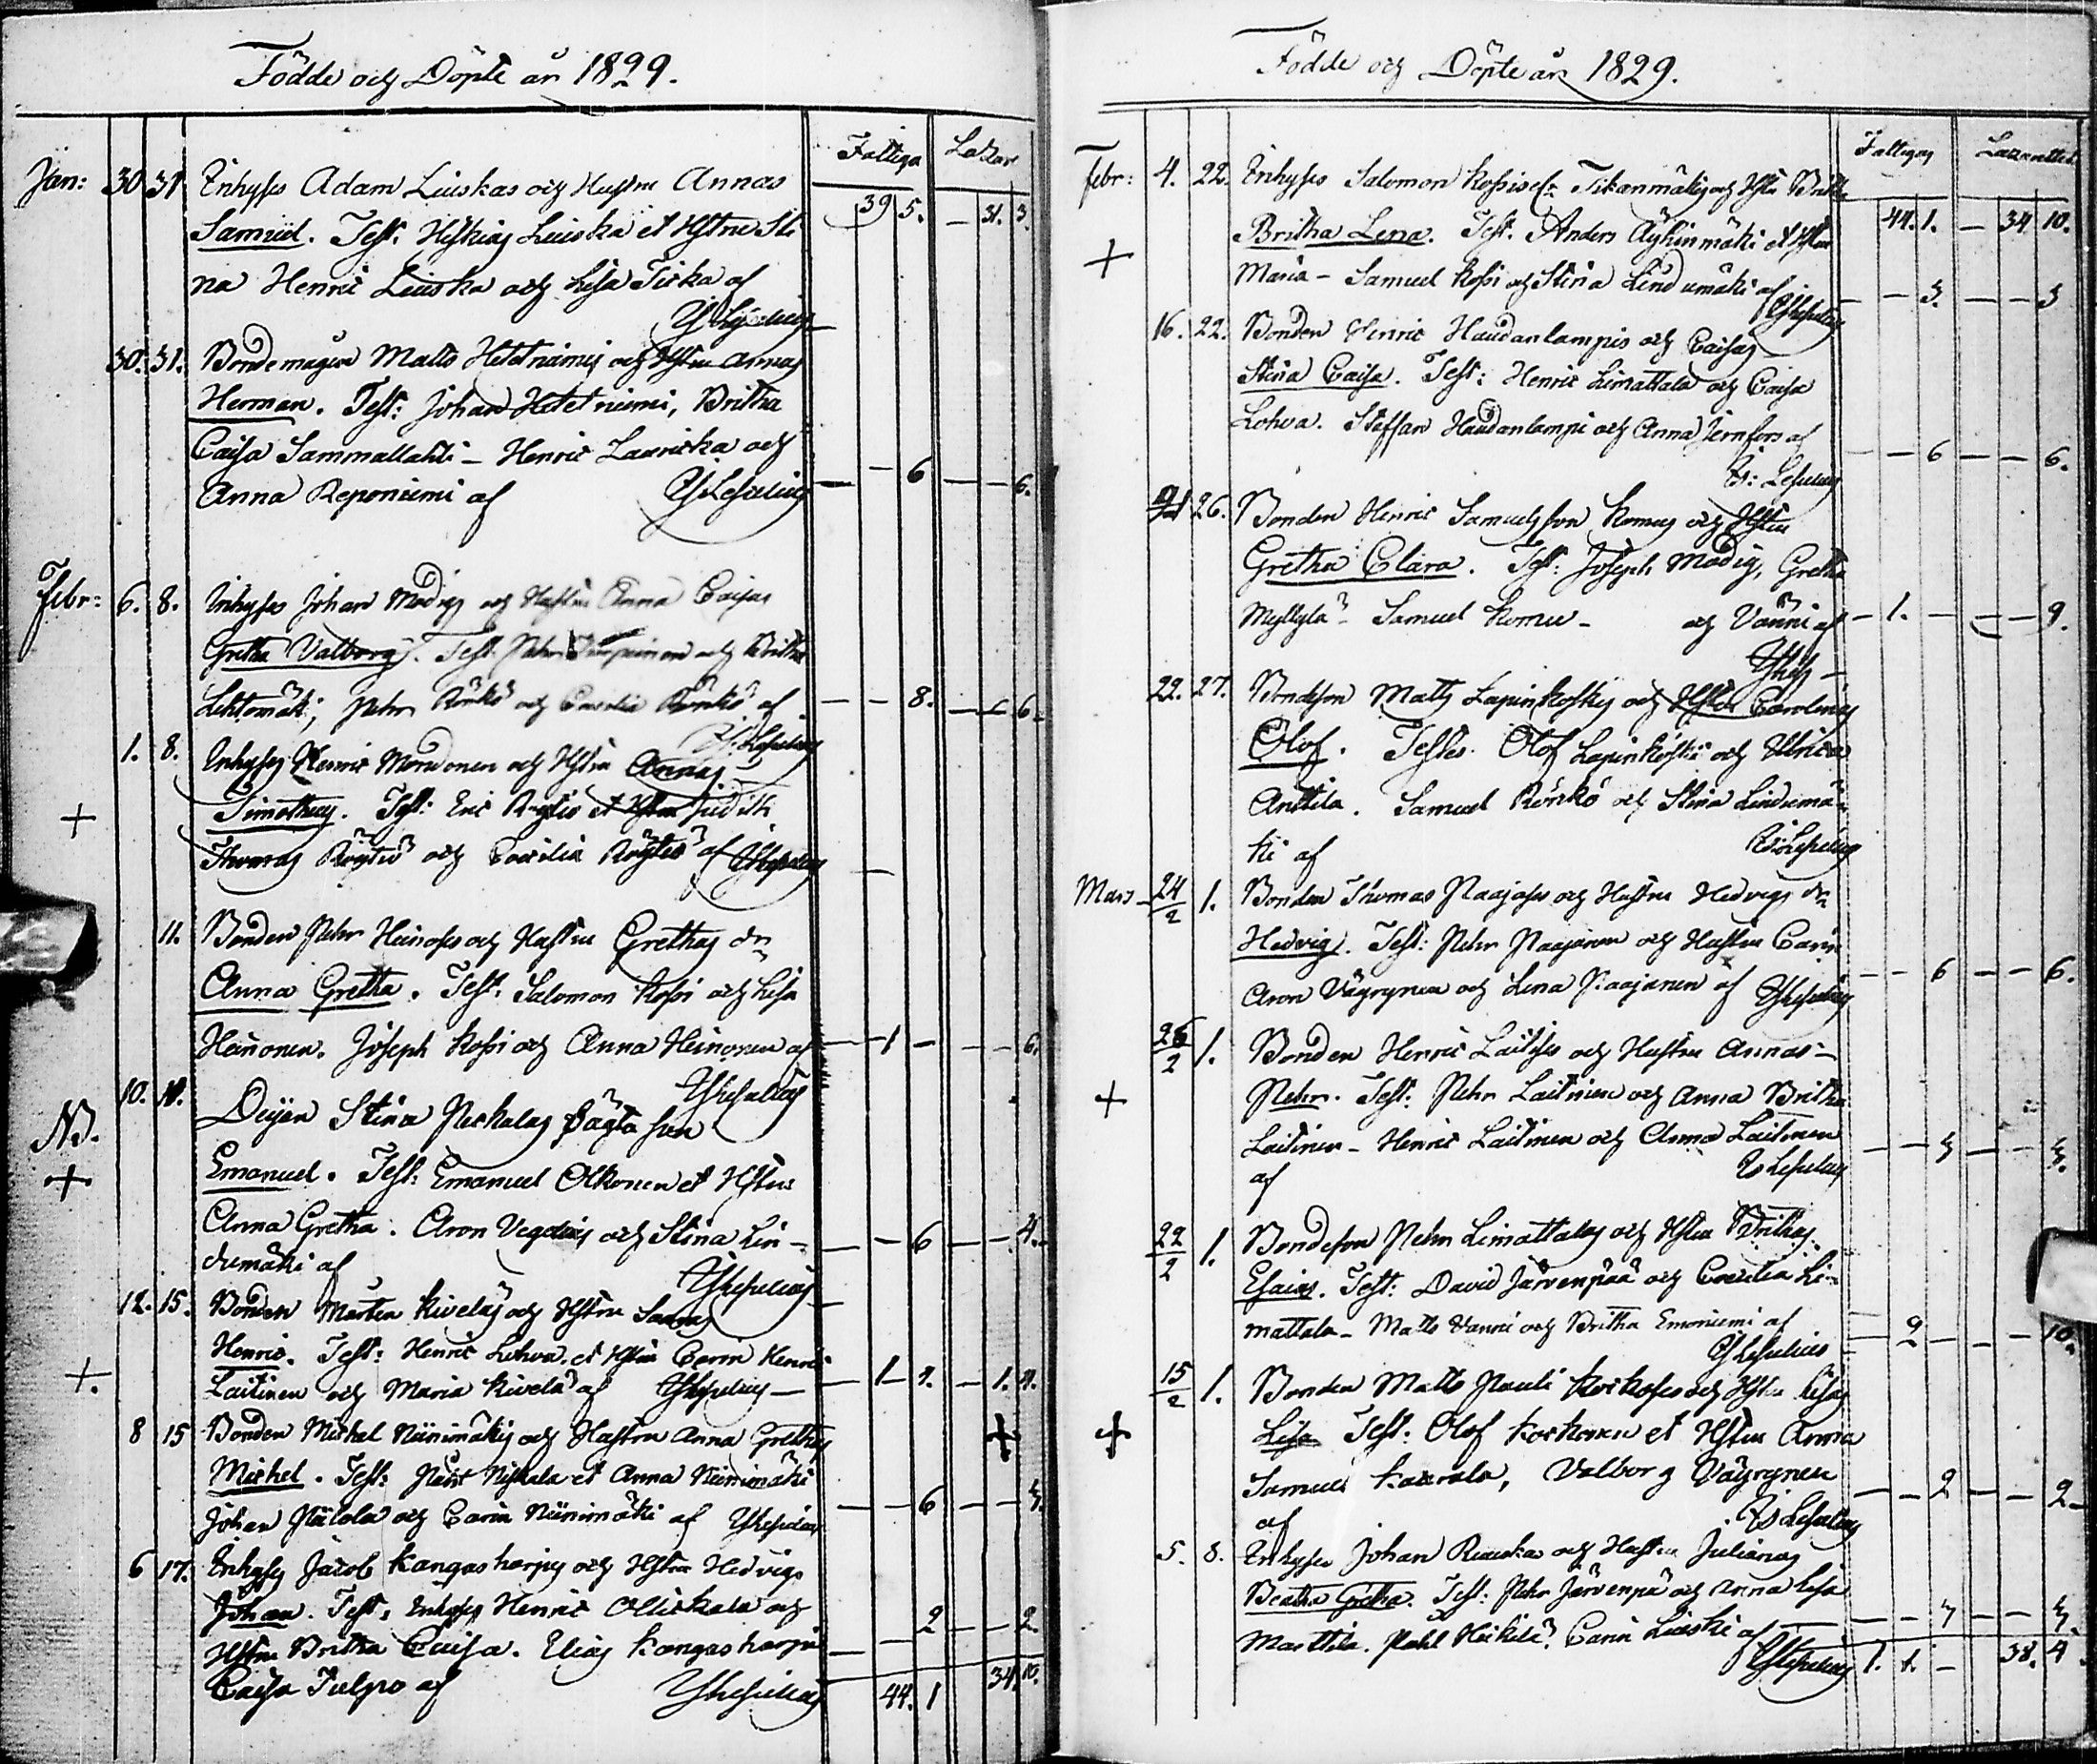 Födde och Döpte år 1829.
Fattiga Lazar
39 5. - 31. 3.
Jan: 30 31 Inhyses Adam Liuskas och Hustru Annas
Samuel. Test. Heskias Liuska et Hstru Sti
na Henric Liuska och Lisa Tiska af
30. 31. Bondemågen Matts Hetetniemis och Hstru Annas
Herman. Test: Johan Hetetniemi, Britha
Caisa Sammallahti - Henric Lauricka och
Anna Reponiemi af - 6 - 6.
Febr: 6. 8. Inhyses Johan Modigs och Hustru Anna Caisas
Gretha Valborg. Test. Pehr och Britha
Lehtomäki, Pehr Rönkö och Caecilia Rönkö af - - 8. - - 6.
1. 8. Inhyses Henric Moradonen och Hstru Annas
+ Timotheus. Test: Eric Röytiö et Hstru Judith
Thomas Röytiö och Caecilia Röytiö af
11. Bonden Pehr Heinoses och Hustru Grethas dr
Anna Gretha. Test: Salomon Kossi och Lisa
Heinonen. Joseph Kossi och Anna Heinonen af - 1 - - - 6.
10. 11. Dejan Stina Perkalas oägta son
NB.
+ Emanuel. Test: Emanuel Olkonen et Hstru
Anna Gretha. Aron Vegelius och Stina Lin-
dumäki af - - 6 - - 4.
12. 15. Bonden Mårten Kiveläs och Hstru Saaras
Henric. Test: Henric Lohva et Hstru Carin Henric
+. Laitinen och Maria Kivelä af - 1 - 1.
8 15 Bonden Michel Niinimäkis och Hustru Anna Grethas +
Michel. Test: Niskala et Anna Niinimäki
Johan Niilola och Carin Niinimäki af - - 6 - -
6 17. Inhyses Jacob Kangasharjus och Hstru Hedvigs
Johan. Test. Inhyses Henric Ollickala och
Hstru Britha Caisa. Elias Kangasharju - 2 - - 2.
Caisa Tulpo af 44. 1 34. 10.
Födde och Döpte år 1829.
Fattigas Lazarettet
44. 1. - 34 10.
Febr: 4. 22. Inhyses Salomon Kossis Tikanmäkis och Hstru Britha
Britha Lena. Test. Anders Äyhinmäki et Hstru
+ Maria - Samuel Kossi och Stina Lindumäki af - - 3. - - 3
16. 22. Bonden Henric Haudanlampis och Caisas
Stina Caisa. Test: Henric Limattala och Caisa
Lohva. Staffan Haudanlampi och Anna Jernfors af - - 6 - - 6.
26. Bonden Henric Samuelsson Komus och Hstru
Gretha Clara. Test: Joseph Modig, Gretha
Myllylä - Samuel Komu - och Vänni af - 1. - - - 9.
22. 27. Bondeson Matts Lapinkoskis och Hstru Carolinas
Olof. Testes. Olof Lapinkoski och Ulrica
Anttila. Samuel Rönkö och Stina Lindumä-
ki af
Mars 24/2 1. Bonden Thomas Paajases och Hustru Hedvigs dr
Hedvig. Test: Pehr Paajanen och Hustru Carin
Aron Väyrynen och Lena Paajanen af - - 6 - - 6.
26/2 1. Bonden Henric Laitises och Hustru Annas -
+ Pehr. Test: Pehr Laitinen och Anna Britha
Laitinen - Henric Laitinen och Anna Laitinen
af
22/2 1. Bondeson Pehr Limattalas och Hstru Brithas
Esaias. Test: David Järvenpää och Caecilia Li-
mattala - Matts Vänni och Britha Emoniemi af - 9 - - 10.
15/2 1. Bonden Matts Pauli Korkoses och Hstru Lisas
+ Lisa Test: Olof Korkonen et Hstru Anna
Samuel Kaarala, Valborg Väyrynen
af - - 2 - - 2.
5. 8. Inhyses Johan Rauskas och Hustru Julianas
Beatha Gretha. Test: Pehr Järvenpä och Anna Lisa
Marttila. Påhl Heikilä. Carin Liuski af
1. 1. - 38. 4